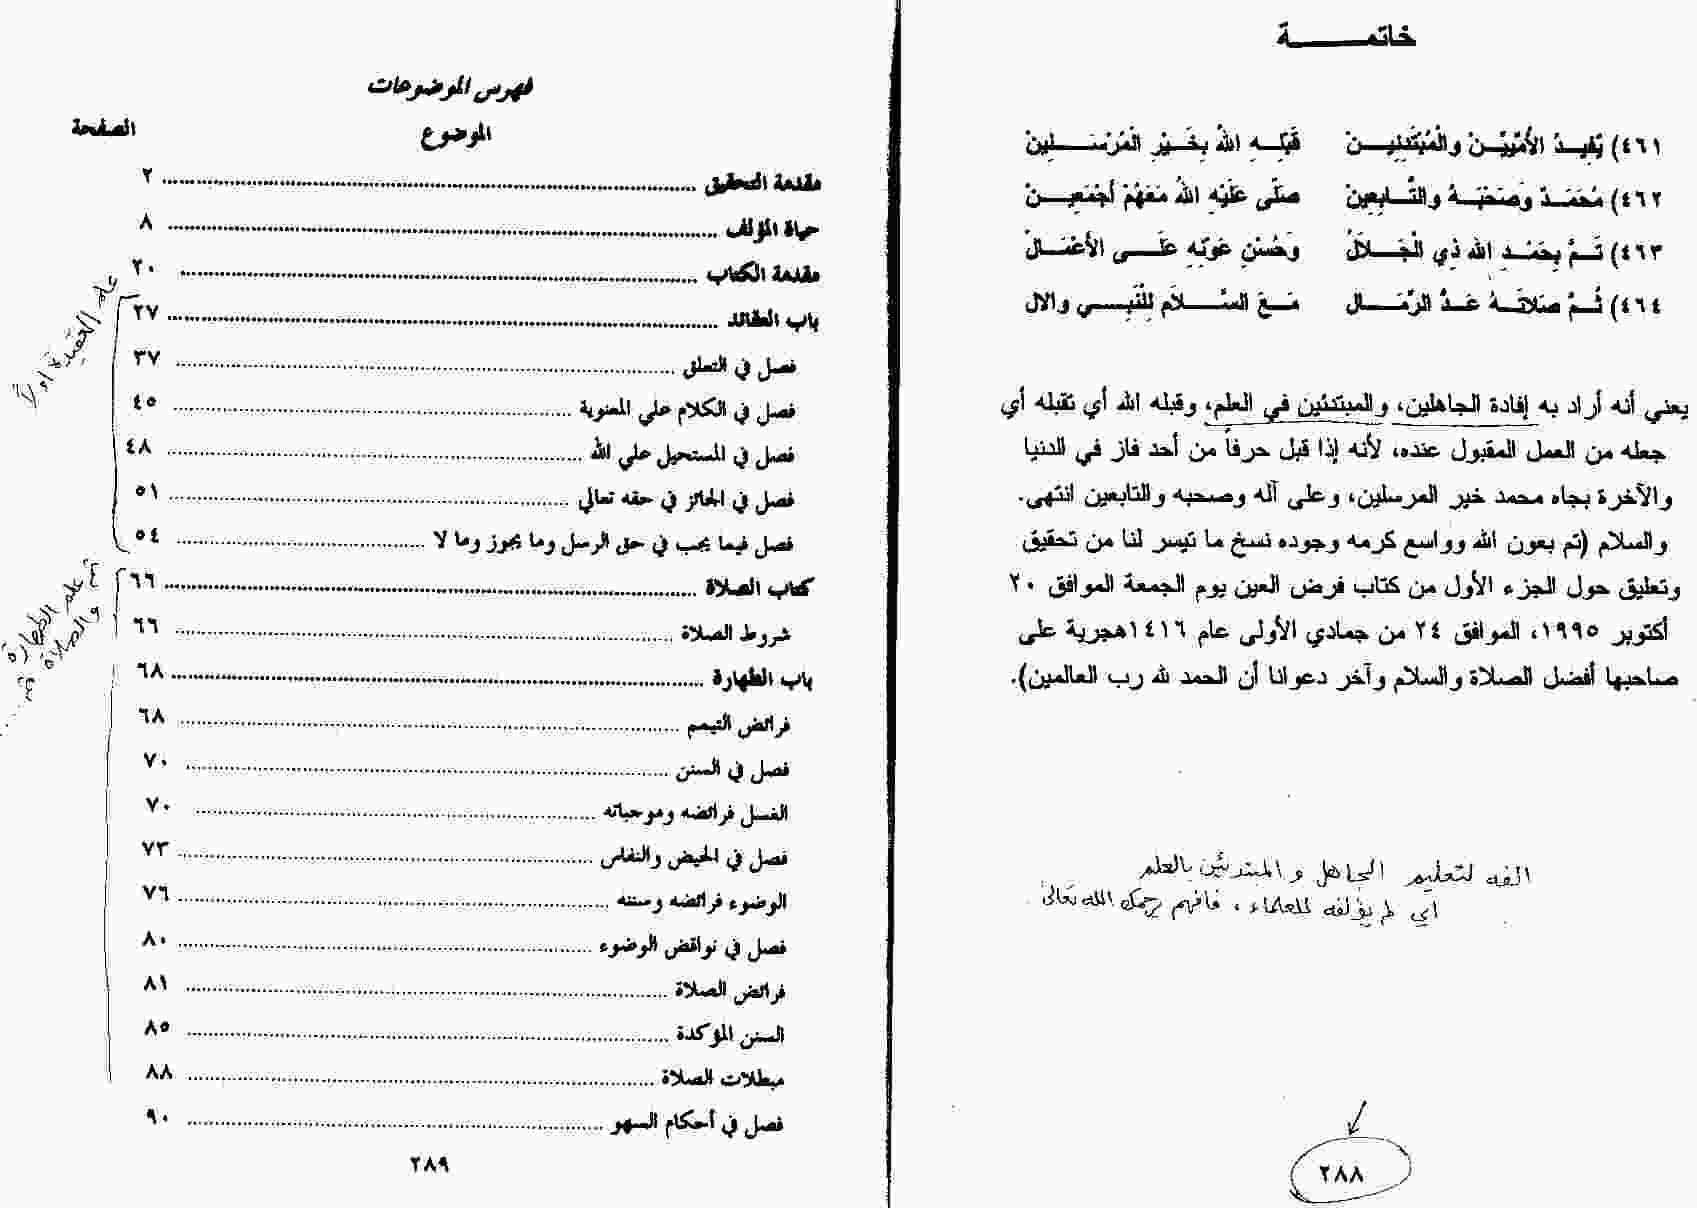 خاتمـــــة
٤٦١) يُفِيدُ الأُمِّيِّـنْ والْمُبْتَدِئِيـنْ قَبِلَـهِ اللهُ بِخَـيْرِ الْمُرْسَـلِينْ
٤٦٢) مُحَمَدْ وَصَحْبَـهُ والتَّـابِعِينْ صلّى عَلَيْهِ اللهُ مَعَهُمْ أجْمَعِيـنْ
٤٦٣) تَـمَّ بِحَمْـدِ الله ذِي الْجَـلاَلْ وَحُسْنِ عَوْنِهِ عَلَـى الأعْمَـالْ
٤٦٤) ثُـمَّ صَلاتَـهُ عَـدَّ الرَّمَـالِ مَـعَ السَّـلاَمِ لِلْنَّبِـي والال
يعني أنه أراد به إفادة الجاهلين، والمبتدئين في العلم، وقبله الله أي تقبله أي
جعله من العمل المقبول عنده، لأنه إذا قبل حرفاً من أحد فاز في الدنيا
والآخرة بجاه محمد خير المرسلين، وعلى آله وصحبه والتابعين انتهى.
والسلام (تم بعون الله وواسع كرمه وجوده نسخ ما تيسر لنا من تحقيق
وتعليق حول الجزء الأول من كتاب فرض العين يوم الجمعة الموافق ٢٠
أكتوبر ١٩٩٥، الموافق ٢٤ من جمادي الأولى عام ١٤١٦هجرية على
صاحبها أفضل الصلاة والسلام وآخر دعوانا أن الحمد لله رب العالمين).
الفه لتعليم الجاهل والمبتدئين بالعلم
اي لم يؤلفه للعلماء، فافهم رحمك الله تعالى
٢٨٨
فهرس الموضوعات
الموضوع الصفحة
مقدمة التحقيق ........ ٢
حياة المؤلف ........ ٨
مقدمة الكتاب ........ ٢٠
باب العقائد ........ ٢٧
فصل في التعلق ........ ٣٧
فصل في الكلام علي المعنوية ........ ٤٥
فصل في المستحيل علي الله ........ ٤٨
فصل في الجائز في حقه تعالي ........ ٥١
فصل فيما يجب في حق الرسل وما يجوز وما لا ........ ٥٤
كتاب الصلاة ........ ٦٦
شروط الصلاة ........ ٦٦
باب الطهارة ........ ٦٨
فرائض التيمم ........ ٦٨
فصل في السنن ........ ٧٠
الغسل فرائضه وموجباته ........ ٧٠
فصل في الحيض والنفاس ........ ٧٣
الوضوء فرائضه وسننه ........ ٧٦
فصل في نواقض الوضوء ........ ٨٠
فرائض الصلاة ........ ٨١
السنن المؤكدة ........ ٨٥
مبطلات الصلاة ........ ٨٨
فصل في أحكام السهو ........ ٩٠
٢٨٩
علم العقيدة اولاً
ثم علم الطهارة
والصلاة ثم....